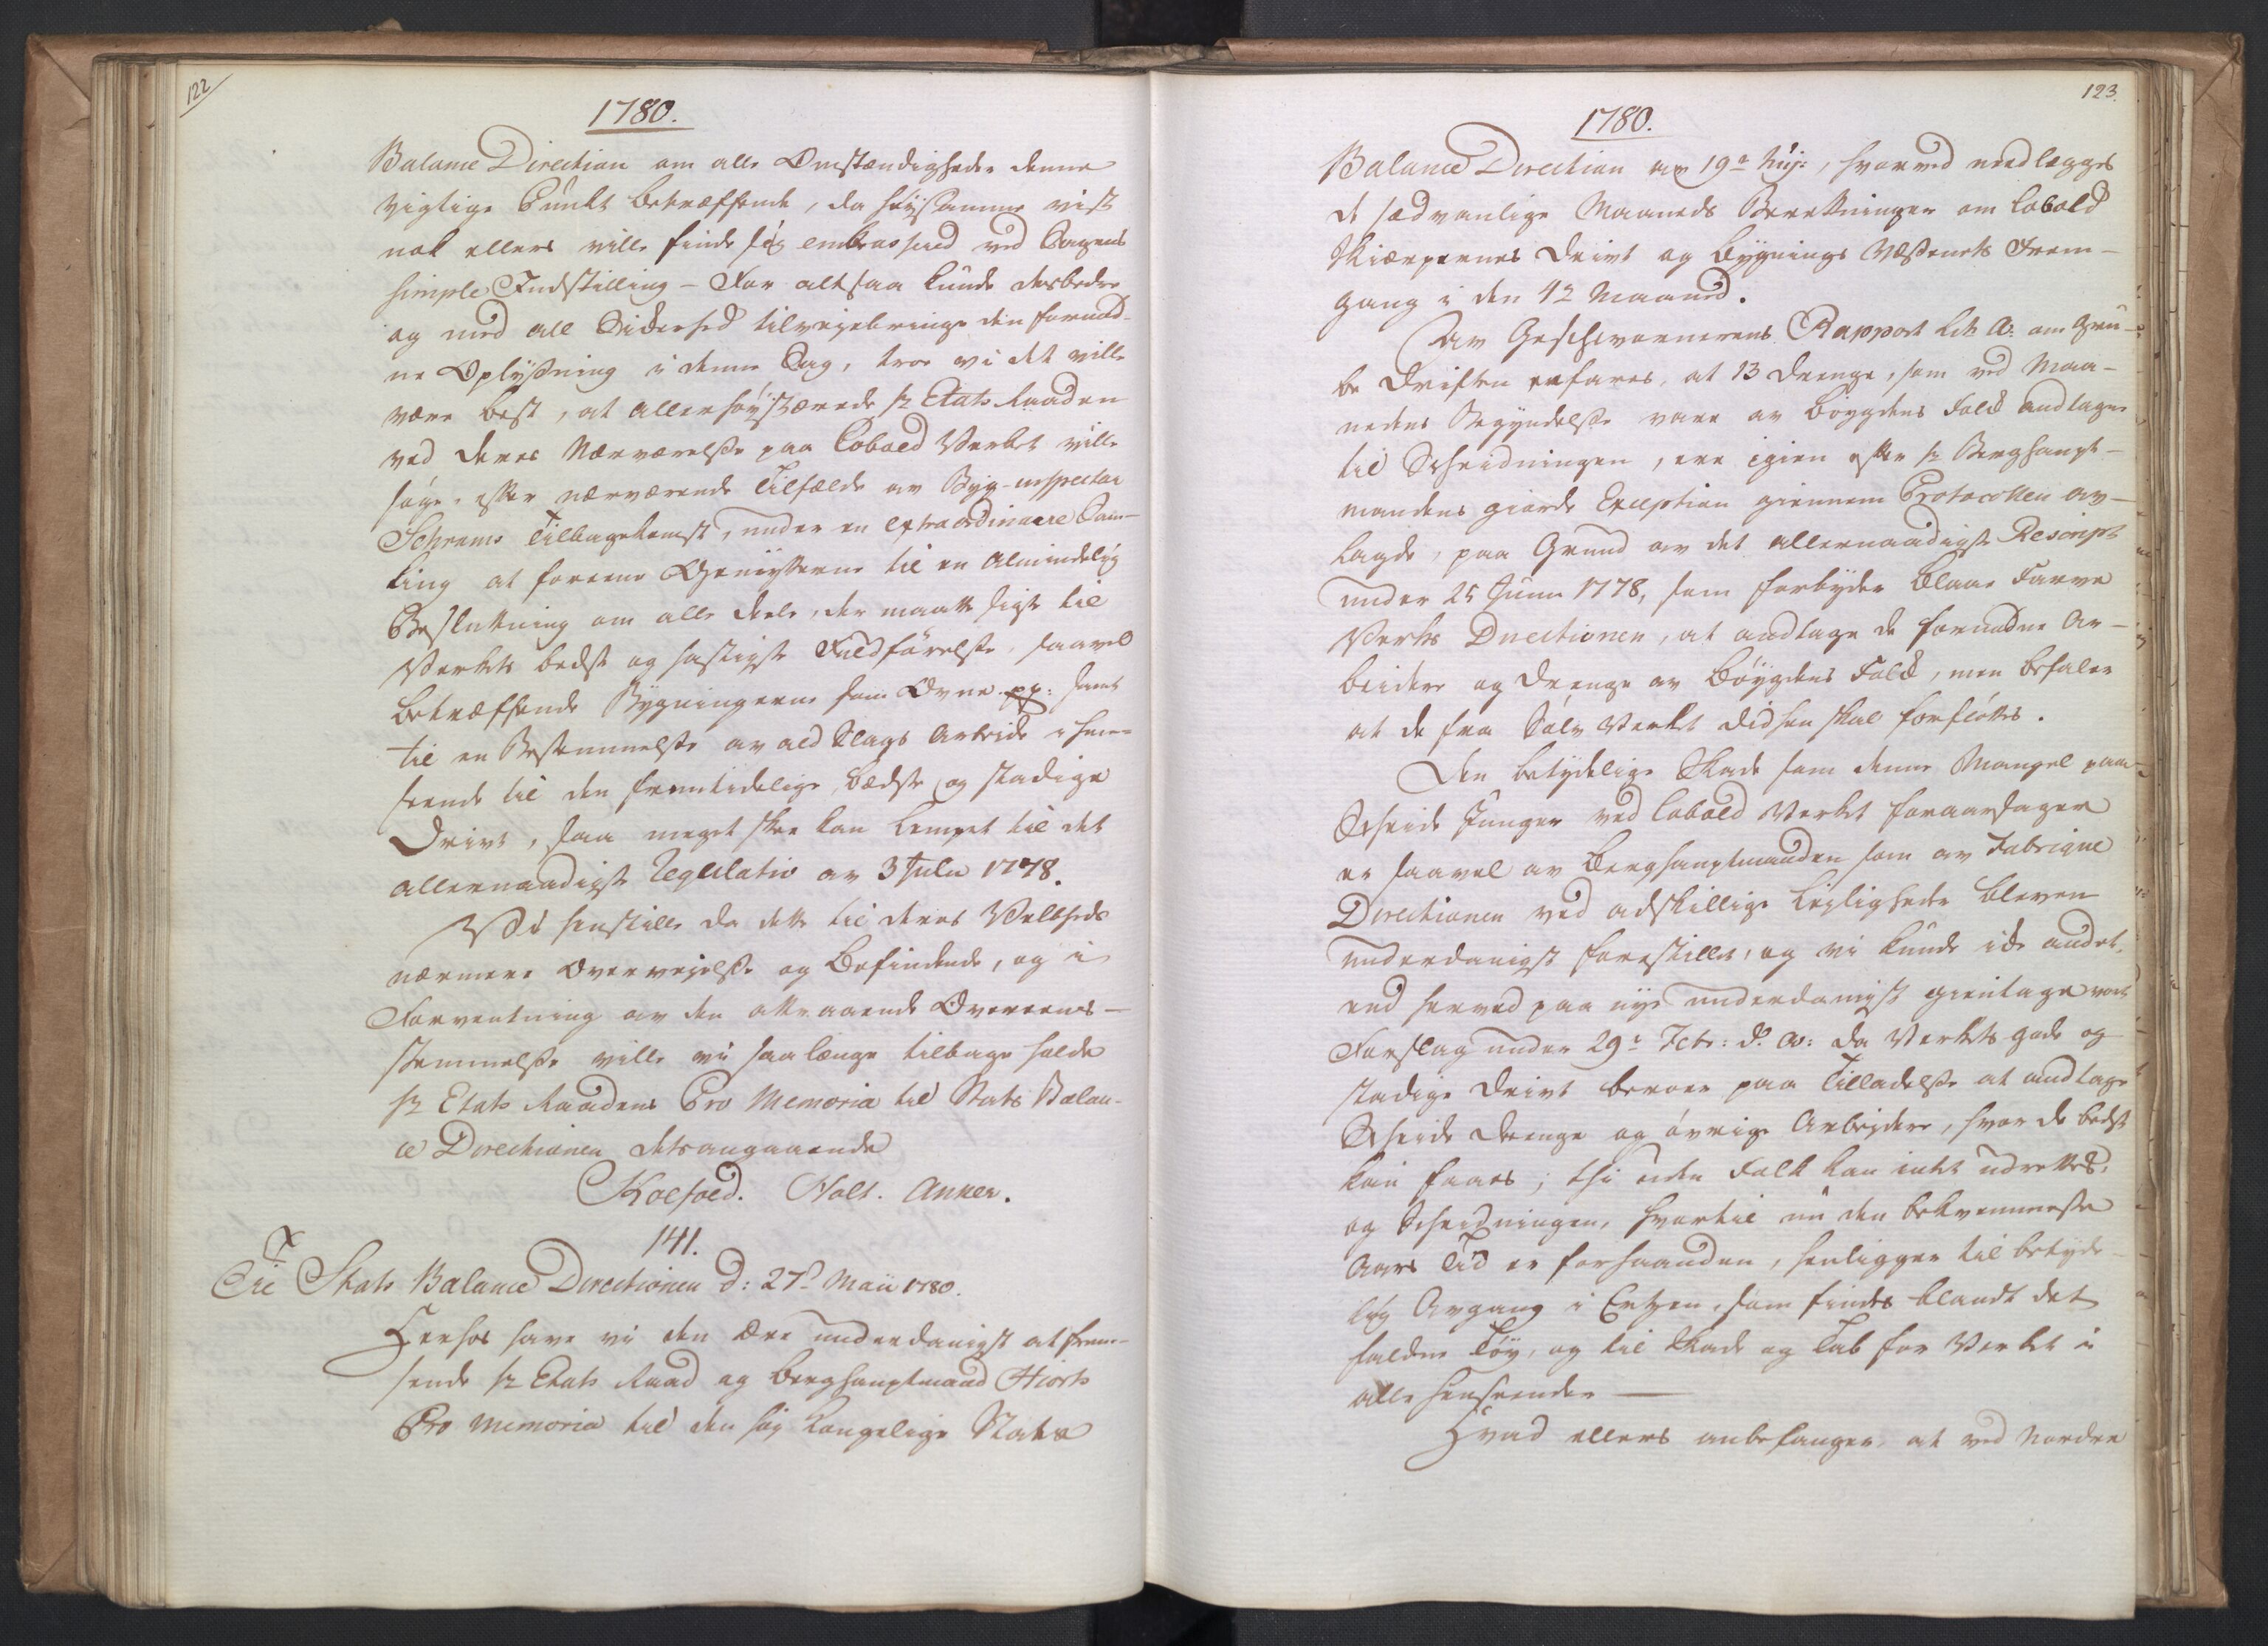 122
1780.
Balance Direction om alle Omstændigheder denne
vigtige Punkt betræffende, da høysamme vist
nok ellers ville finde sig embrasseret ved Sagens
simple Indstilling – For altsaa kunde desbedre
og med all Sikerhed tilvejebringe den fornød-
ne Oplysning i denne Sag, troe vi det ville
være best, at allerhøystærede hr Etats Raaden
ved deres Nærværelse paa Cobold Verket ville
søge, efter nærværende Tilfælde av Byg-inspecteur
Schrams Tilbagekomst, under en extraordinaire Sam-
ling at foreene Gemytterne til en almindelig
Beslutning om alle deele, der maatte sigte til
Verkets bedste og hastigste Fuldførelse, saavel
betræffende Bygningerne som Ovne pp: samt
til en Bestemmelse av all Slags Arbeide i hen-
seende til den fremtidelige, bedste og stadige
Drivt, saa meget skee kan lempet til det
allernaadigste Regulativ av 3 Julii 1778.
Vi henstille da dette til deres Velbrheds
nærmere Overvejelse og Befindende, og i
Forventning av den attraaende Overeens-
stemmelse ville vi saa længe tilbage holde
hr Etats Raadens Pro Memoria til Stats Balan-
ce Directionen detsangaaende
Kolsoed. Holt. Anker.
141.
Til Stats Balance Directionen d: 27de Maii 1780.
Herhos have vi den Ære underdanigst at frem-
sende hr Etats Raad og Berghauptmand Hiorts
Pro Memoria til den høy Kongelige Stats
123.
1780.
Balance Direction av 19de huj:, hvorved medlægges
de sædvanlige Maaneds Beretninger om Cobold
Skiærpernes Drivt og Bygnings Væsenets Frem-
gang i den 42 Maaned.
Av Geschwornerens Rapport Litr A: om Gru-
be Driften erfares, at 13 Drenge, som ved Maa-
nedens Begyndelse vare av Bøygdens Folk andtagne
til Scheidningen, ere igien efter hr Berghaupt-
mandens giorde Exception giennem Protocollen av-
lagde, paa Grund av det allernaadigste Rescript
under 25 Junii 1778, som forbyder Blaae Farve
Verks Directionen, at andtage de fornødne Ar-
beidere og Drenge av Bøygdens Folk, men befaler
at de fra Sølv Verket didhen skal forflöttes.
Den betydelige Skade som denne Mangel paa
Scheide Junger ved Cobold Verket foraarsager
er saavel av Berghauptmanden som av Fabrique
Directionen ved adskillige Leyligheder bleven
underdanigst forestillet, og vi kunde ike andet,
end herved paa nye underdanigst gientage vort
Forslag under 29de Febr: d. A: da Verkets gode og
stadige Drivt beroer paa Tilladelse at andtage
Scheide Drenge og øvrige Arbejdere, hvor de bedst
kan faaes; thi uden Folk kan intet udrettes,
og Scheidningen, hvortil nu den bekvemmeste
Aars Tid er forhaanden, henligger til betyde-
lig Avgang i Ertzen, som findes blandt det
faldne Tøy, og til Skade og Tab for Verket i
alle henseender –
Hvad ellers anbelanger, at ved Nordre